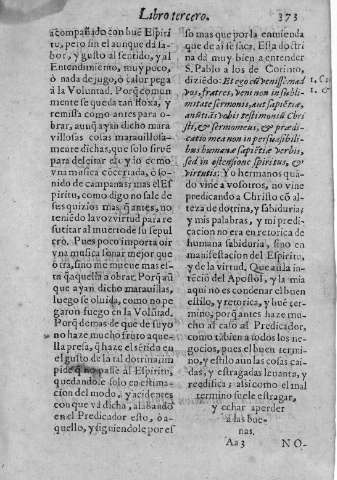 Libro tercero. 373
acompañado con buẽ Espiri
tu, pero sin el aunque dá la-
bor, y gusto al sentido, y al
Entendimiento, muy poco,
ó nada de jugo, ó calor pega
á la Voluntad. Porq̃ comun
mente se queda tan floxa, y
remissa como antes para o-
brar, aunq̃ ayan dicho mara
villosas cosas marauillosa-
mente dichas, que solo sirvẽ
para deleitar el oido como
vna musica concertada, o so-
nido de campanas; mas el Es
piritu, como digo no sale de
sus quizios mas q̃ antes, no
teniẽdo la voz virtud para re
sutitar al muerto de su sepul
cro. Pues poco importa oir
vna musica sonar mejor que
otra, si no me mueue mas es-
ta q̃ aquella á obrar. Porq̃ aũ
que ayan dicho marauillas,
luego se oluida, como no pe
garon fuego en la Volũtad.
Porq̃ demas de que de suyo
no haze mucho fruto aque-
lla presa, q̃ haze el sẽtido en
el gusto de la tal dotrina, im
pide q̃ no passe al Espiritu,
quedandose solo en estima-
cion del modo, y acidentes
con que vá dicha, alabando
en el Predicador esto, ò a-
quello, y siguiendole por es
so mas que por la enmienda
que de ai se saca. Esta dotri
na dá muy bien a entender
S. Pablo a los de Corinto,
diziẽdo: Et ego cũ venissẽ ad
vos, fratres, veni non in subli
mitate sermonis, aut sapiẽtiæ,
anũtiãs vobis testimoniũ Chri
sti, & sermo meus, & prædi-
catio mea non in persuasibili
bus humanæ sapiẽtiæ verbis,
sed in ostensione spiritus, &
virtutis: Yo hermanos quã-
do vine a vosotros, no vine
predicando a Christo cõ al
teza de dotrina, y sabiduria;
y mis palabras, y mi predi-
cacion no era en retorica de
humana sabiduria, sino en
manifestacion del Espiritu,
y de la virtud. Que aũ la in-
tẽció del Apostol, y la mia
aqui no es condenar el buen
estilo, y retorica, y buẽ ter-
mino, porq̃ antes haze mu-
cho al caso al Predicador,
como tãbien a todos los ne-
gocios, pues el buen termi-
no, y estilo aun las cosas cai-
das, y estragadas leuanta, y
reedifica; asi como el mal
termino suele estragar,
y echar a perder
á las bue-
nas.
Aa 3 NO-